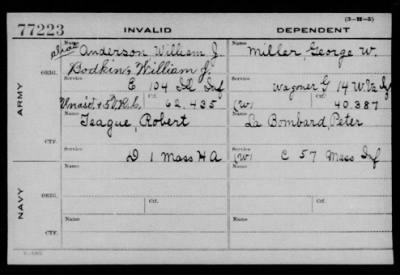 (3-III-5)
77223 INVALID DEPENDENT
Name
alias Anderson William J.
Bodkins, William J.
Name
Miller, George W.
ARMY
ORIG.
Service
E 104 Ill Inf
Service
Wagoner G 14 W.Va Inf
Ctf.
62.435
(W) Ctf.
40.387
CTF.
Name
Teague, Robert
Name
La Bombard, Peter
Service
D 1 Mass HA
Service
(W) C 57 Mass Inf
NAVY
ORIG.
Name
Name
Service
Ctf.
Service
Ctf.
CTF.
Name
Name